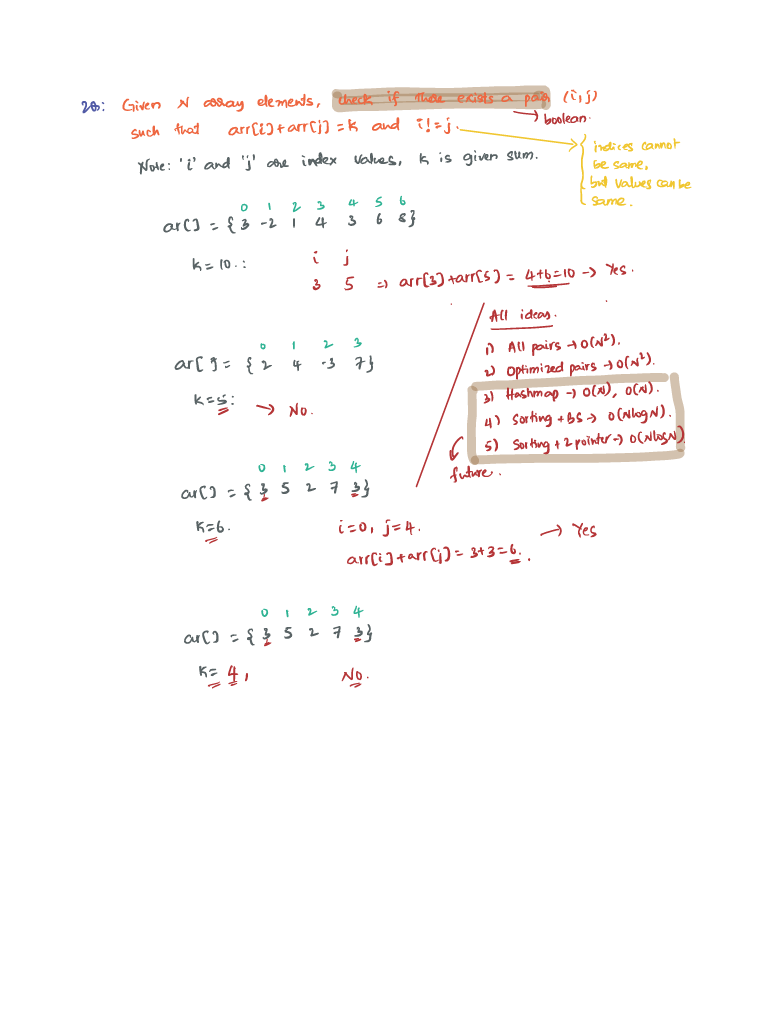 2Q: Given N array elements, check if there exists a pair (i,j)
→ boolean.
such that arr[i]+arr[j] = K and i != j.
indices cannot
be same,
but values can be
same.
Note: 'i' and 'j' are index values, K is given sum.
0 1 2 3 4 5 6
ar[] = {3 -2 1 4 3 6 8}
K = 10.:
i j
3 5 => arr[3]+arr[5] = 4+6=10 → Yes.
All ideas.
1) All pairs → O(N²).
2) Optimized pairs → O(N²).
3) Hashmap → O(N), O(N).
4) Sorting + BS → O(NlogN).
5) Sorting + 2 pointer → O(NlogN)
future.
0 1 2 3
ar[] = {2 4 -3 7}
K=5: → No.
0 1 2 3 4
ar[] = {3 5 2 7 3}
K=6. i=0, j=4. → Yes
arr[i]+arr[j] = 3+3=6.
0 1 2 3 4
ar[] = {3 5 2 7 3}
K= 4, No.